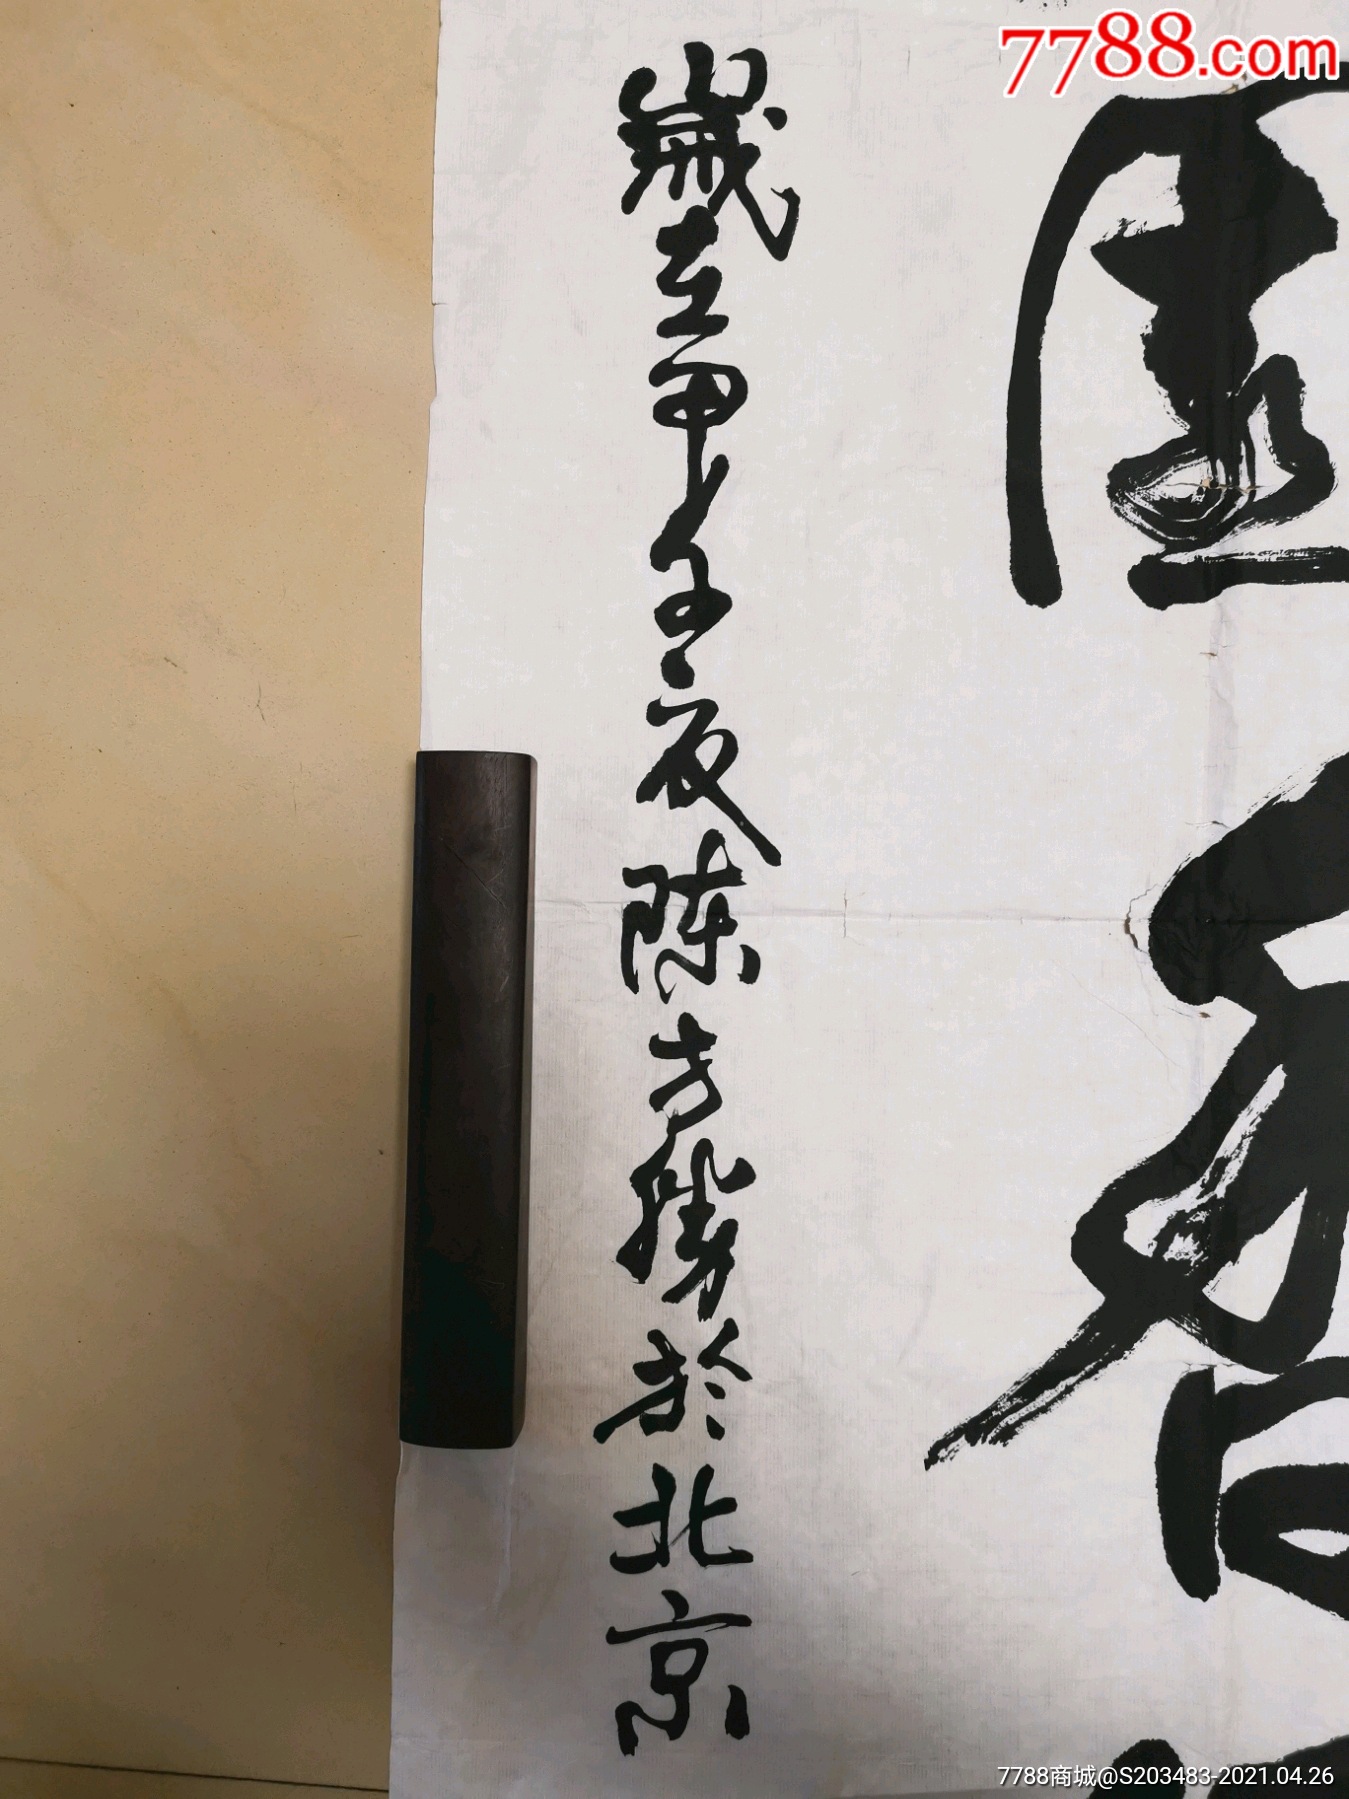 7788.com
歲在甲子夏陈方勝於北京
7788商城@S203483-2021.04.26